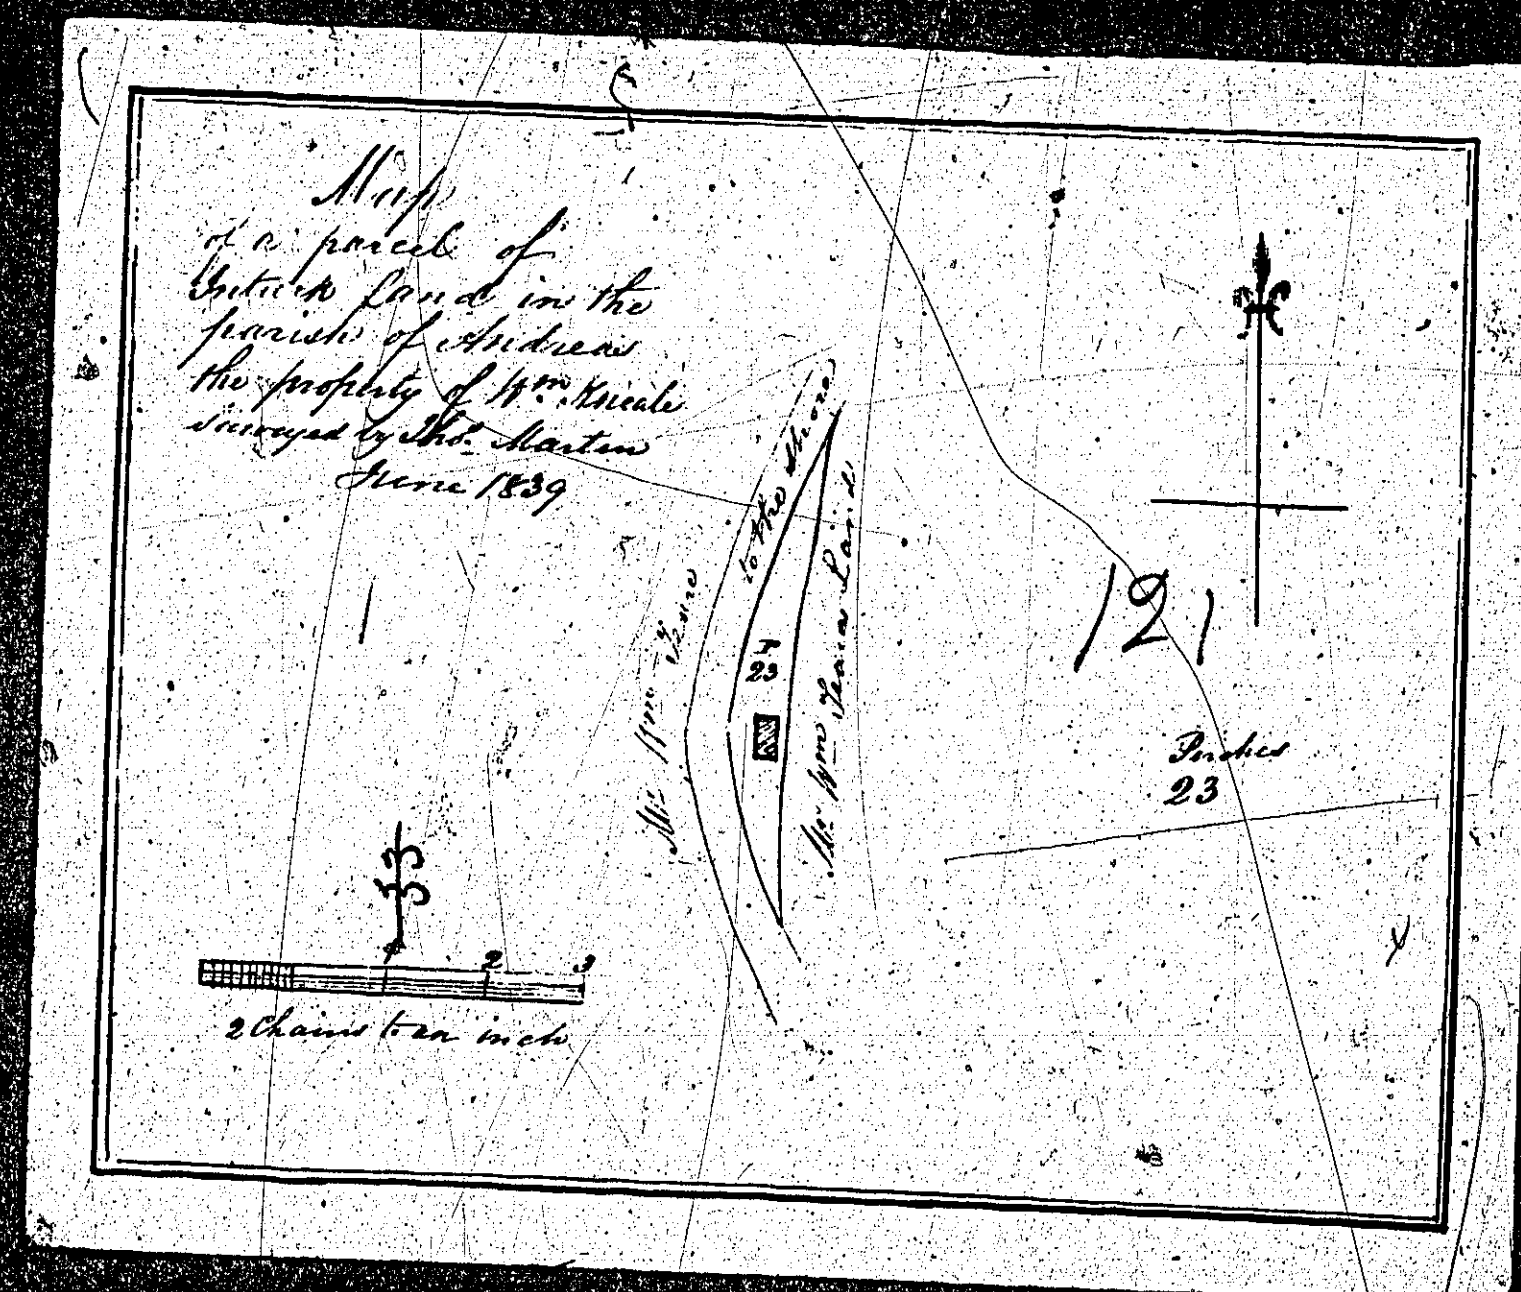 Map
of a parcel of
Intack Land in the
parish of Andreas
the property of Wm. Kneale
surveyed by Thos. Martin
June 1839
to the Shore
Mr. Wm.
23
P
Mr. Wm Teares Land
121
Perches
23
33
2 3
2 Chains to an inch